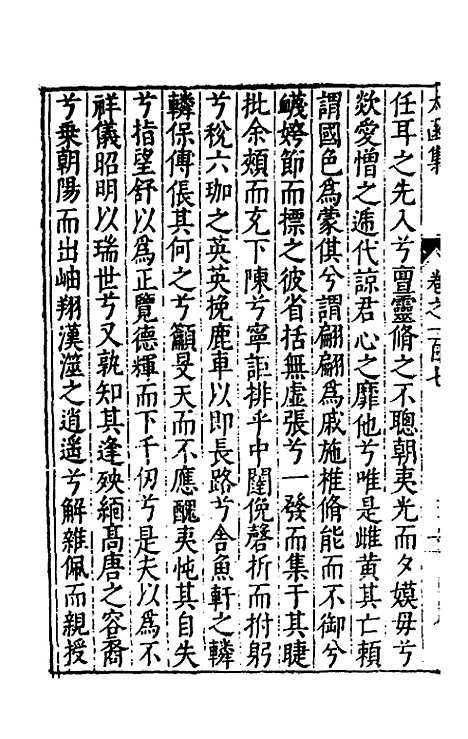 太函集 卷之一百七
任耳之先入兮亶靈脩之不聰朝夷光而夕嫫毋兮
欻愛憎之遞代諒君心之靡他兮唯是雌黄其亡賴
謂國色爲蒙倛兮謂翩翩爲戚施椎脩能而不御兮
皢姱節而標之彼省括無虚張兮一發而集于其睫
批余頰而充下陳兮寧詎排乎中闈俛磬折而拊躬
兮稅六珈之英英挽鹿車以即長路兮舍魚軒之轔
轔保傅倀其何之兮籲旻天而不應醜夷忳其自失
兮指望舒以爲正覽德輝而下千仞兮是夫以爲不
祥儀昭明以瑞世兮又孰知其逢殃緬高唐之容裔
兮乗朝陽而出岫翔漢澨之逍遥兮解雜佩而親授